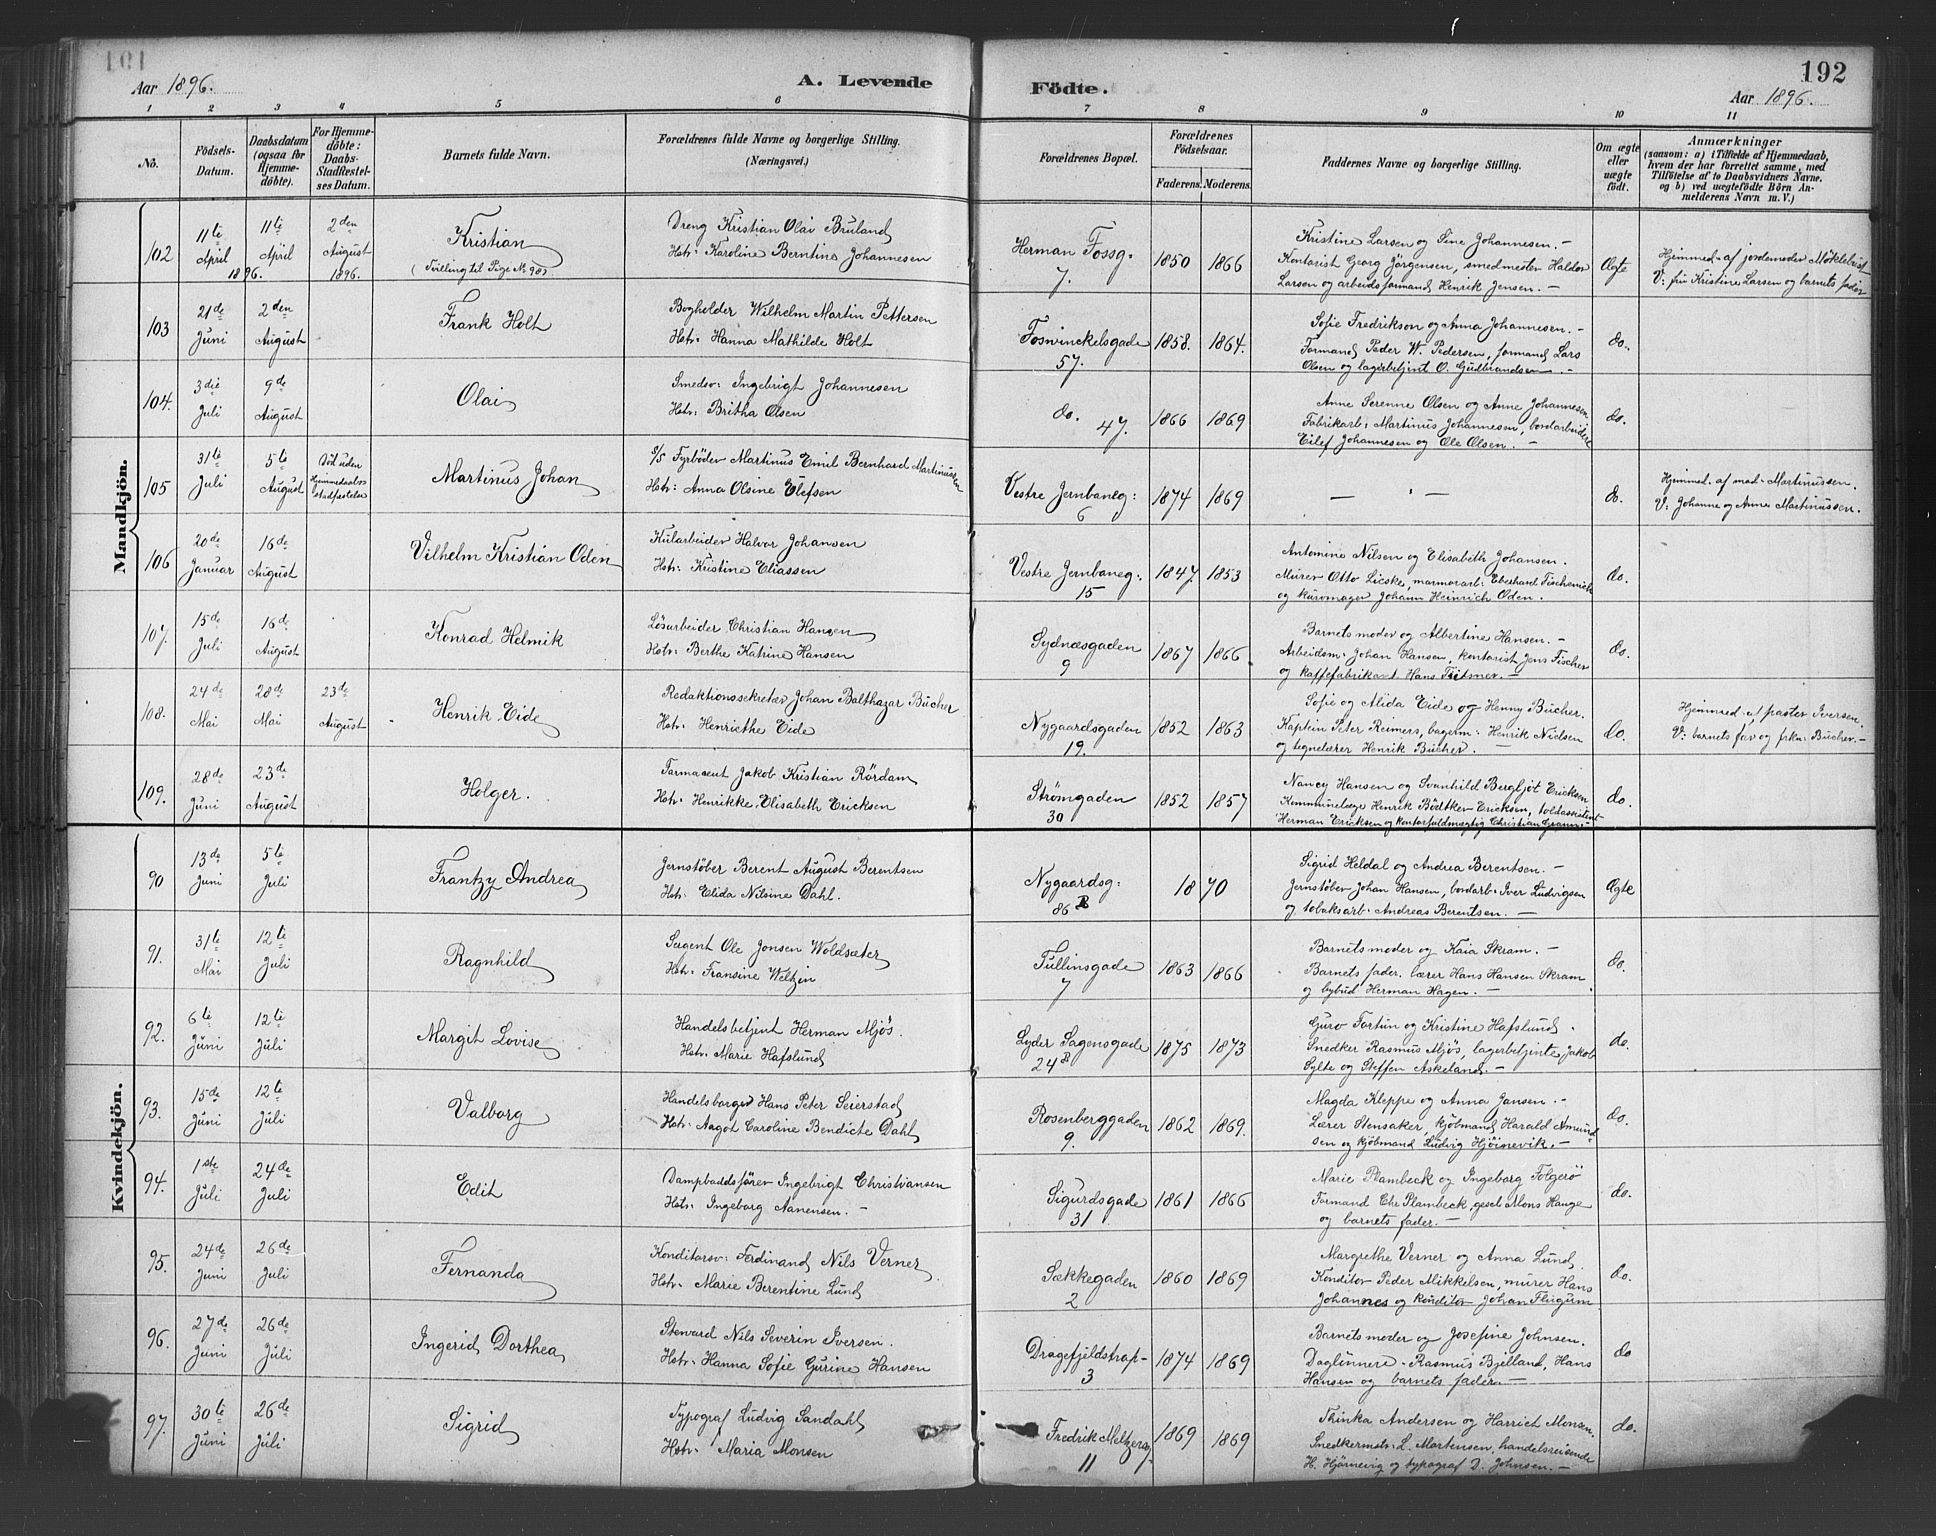 192
Aar 1896.
A. Levende
Födte.
Aar 1896.
1 2 3 4 5 6 7 8 9 10 11
No.
Födsels-Datum.
Daabsdatum (ogsaa for Hjemmedöbte).
For Hjemmedöbte: Daabs-Stadfestelses Datum.
Barnets fulde Navn.
Forældrenes fulde Navne og borgerlige Stilling. (Næringsvei.)
Forældrenes Bopæl.
Forældrenes Födselsaar.
Faderens. Moderens.
Faddernes Navne og borgerlige Stilling.
Om ægte eller uægte födt.
Anmærkninger
(saasom: a) i Tilfælde af Hjemmedaab, hvem der har forrettet samme, med Tilföielse af to Daabsvidners Navne, og b) ved uægtefödte Börn Anmelderens Navn m. V.)
Mandkjön.
102 11te April 1896. 11te April 2den August 1896.
Kristian
(Tvilling til Pige No 98)
Dreng Kristian Olai Bruland
Hstr: Karoline Berntine Johannesen
Herman Fossg: 7. 1850 1866
Kristine Larsen og Sine Johannesen. —
Kontorist Georg Jörgensen, smedmester Haldor
Larsen og arbeidsformand Henrik Jensen. —
Ægte
Hjemmed. af jordemoder Möklebust
V: fru Kristine Larsen og barnets fader
103 21de Juni 2den August
Frank Holt
Bogholder Wilhelm Martin Pettersen
Hstr: Hanna Mathilde Holt
Foswinckelsgade 57. 1858. 1864.
Sofie Fredrikson og Anna Johannesen. —
Formand Peder W. Pedersen, formand Lars
Olsen og lagerbetjent O. Gudbrandsen. —
do.
104. 3die Juli 9de August
Olai
Smedsv: Ingebrigt Johannesen
Hstr: Britha Olsen
do. 47. 1866 1869
Anne Serenne Olsen og Anne Johannesen.
Fabrikarb: Martinus Johannesen, bordarbeider
Eilef Johannesen og Ole Olsen. —
do.
105 31te Juli 5te August Död uden Hjemmedaabs stadfæstelse
Martinus Johan
S/S Fyrböder Martinus Emil Bernhard Martinussen
Hstr: Anna Olsine Elefsen
Vestre Jernbaneg: 6 1874 1869
— " —
do.
Hjemmed. af mad. Martinussen.
V: Johanne og Anna Martinussen.
106 20de Januar 16de August
Vilhelm Kristian Oden
Kularbeider Halvor Johansen
Hstr: Kristine Eliassen
Vestre Jernbaneg: 15 1847 1853
Antomine Nilsen og Elisabeth Johansen.
Murer Otto Licske, marmorarb: Eberhard Fischenich
og kurvmager Johann Heinrich Oden.
do.
107. 15de Juli 16de August
Konrad Helmik
Lösarbeider Christian Hansen
Hstr: Berthe Katrine Hansen
Sydnæsgaden 9 1867 1866
Barnets moder og Albertine Hansen. —
Arbeidsm: Johan Hansen, kontorist Jens Fischer
og kaffefabrikant Hans Fitsmer. —
do.
108. 24de Mai 28de Mai 23de August
Henrik Eide
Redaktionssekretær Johan Balthazar Bücher
Hstr: Henriethe Eide
Nygaardsgaden 19. 1852 1863
Sofie og Alida Eide og Henny Bücher.
Kaptein Peter Reimers, bagerm: Henrik Nielsen
og tegnelærer Henrik Bücher. —
do.
Hjemmed. af pastor Iversen.
V: barnets far og frkn: Bücher. —
109. 28de Juni 23de August
Holger.
Farmaceut Jakob Kristian Rördam
Hstr: Henrikke Elisabeth Ericksen
Strömgaden 30 1852 1857
Nancy Hansen og Svanhild Bergljot Ericksen
Kommunelæge Henrik Bödtker Ericksen, toldassistent
Herman Ericksen og kontorfuldmægtig Christian Grann. —
do.
Kvindekjön.
90 13de Juni 5te Juli
Frantzy Andrea
Jernstöber Berent August Berentsen
Hstr: Elida Nilsine Dahl.
Nygaardsg: 86 B 1870
Sigrid Heldal og Andrea Berentsen. —
Jernstöber Johan Hansen, bordarb. Iver Ludvigsen
og tobaksarb. Andreas Berentsen. —
Ægte
91. 31te Mai 12te Juli
Ragnhild
Sergent Ole Jonsen Woldsæter
Hstr: Fransine Weltzin
Tullinsgade 7 1863 1866
Barnets moder og Kaia Skram. —
Barnets fader, lærer Hans Hansen Skram
og bybud Herman Hagen. —
do.
92. 6te Juni 12te Juli
Margit Lovise
Handelsbetjent Herman Mjös.
Hstr: Marie Hafslund
Lyder Sagensgade 24 B 1875 1873
Guro Fortun og Kristine Hafslund.
Snedker Rasmus Mjös, lagerbetjente Jakob
Sylte og Steffen Askeland. —
do.
93. 15de Juni 12te Juli
Valborg
Handelsborger Hans Peter Seierstad
Hstr: Aagot Caroline Bendicte Dahl
Rosenberggaden 9. 1862 1869.
Magda Kleppe og Anna Jansen. —
Lærer Stensaker, kjöbmand Harald Amundsen og kjöbmand Ludvig Hjöinevik. —
do.
94. 1ste Juli 24de Juli
Edit
Dampbaddsförer Ingebrigt Christiansen
Hstr: Ingeborg Aanensen. —
Sigurdsgade 31 1861 1866
Marie Plambeck og Ingeborg Folgerö
Formand Chr Plambeck, gesel Mons Hauge
og barnets fader. —
do.
95. 24de Juni 26de Juli
Fernanda
Konditorsv: Ferdinand Nils Verner
Hstr. Marie Berentine Lund
Sækkegaden 2 1860 1869
Margrethe Verner og Anna Lund.
Konditor Peder Mikkelsen, murer Hans
Johannes og konditor Johan Flugum
do.
96. 27de Juni 26de Juli
Ingerid Dorthea
Steward Nils Severin Iversen.
Hstr. Hanna Sofie Gurine Hansen
Dragefjeldstrap- 3 1874 1869
Barnets moder og Josefine Johnsen.
Daglönnere. Rasmus Bjelland, Hans
Hansen og barnets fader. —
do
97. 30te Juni 26de Juli
Sigrid
Typograf Ludvig Sandahl
Hstr. Maria Monsen
Fredrik Meltzersg. 11 1869 1869
Thinka Andersen og Harriet Monsen.
Snedkermstr. L. Mortensen, handelsreisende
H. Hjörnevig og typograf D. Johnsen. —
do.